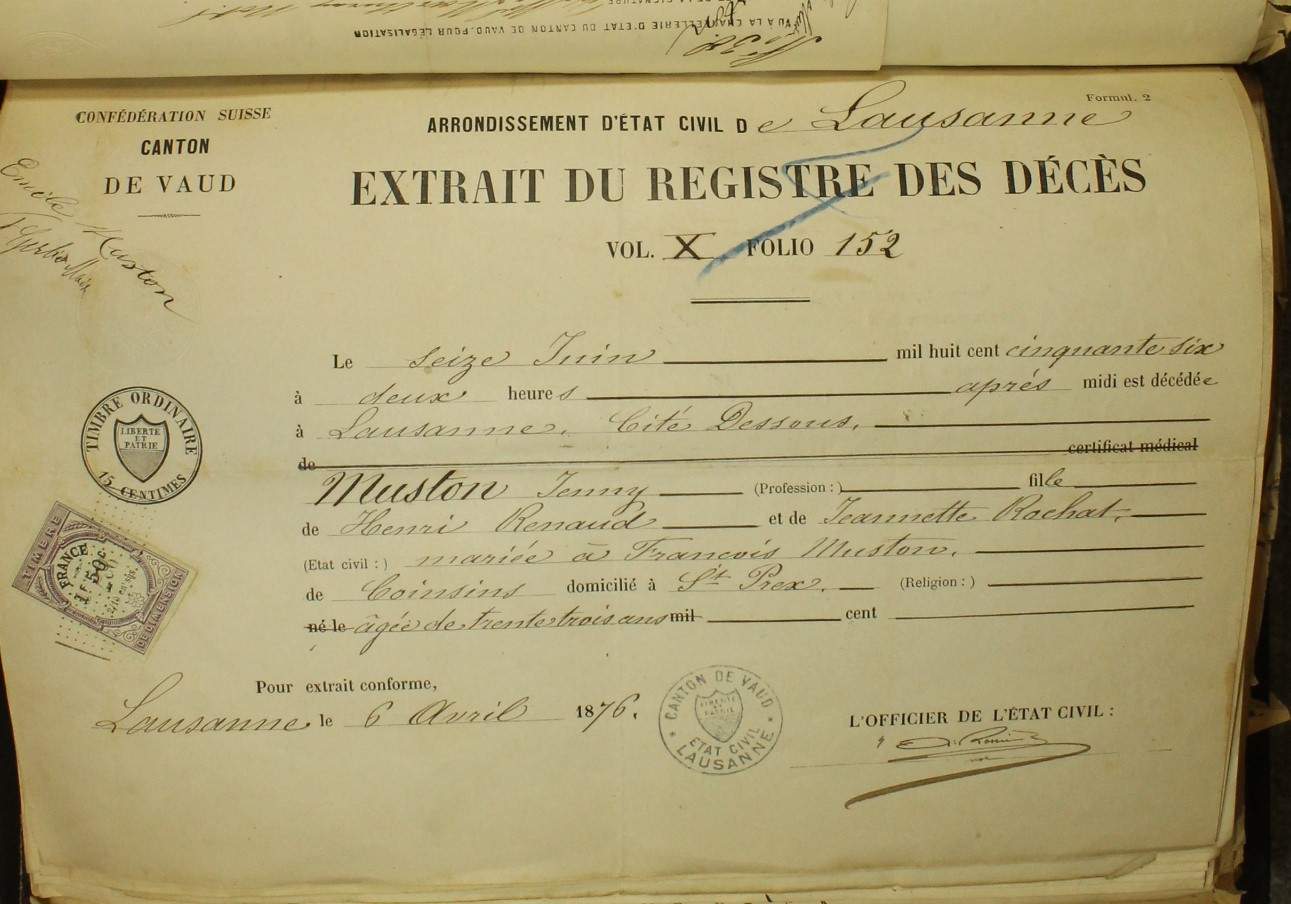 VU À LA CHANCELLERIE D'ÉTAT DU CANTON DE VAUD, POUR LÉGALISATION
Formul. 2
CONFÉDÉRATION SUISSE
CANTON
DE VAUD
Emile Muston
ARRONDISSEMENT D'ÉTAT CIVIL De Lausanne
EXTRAIT DU REGISTRE DES DÉCÈS
VOL. X FOLIO 152
Le seize Juin mil huit cent cinquante six
à deux heures après midi est décédée
à Lausanne, Cité Dessous,
de certificat médical
Muston Jenny (Profession :) fille
de Henri Renaud et de Jeannette Rochat,
(Etat civil :) mariée à François Muston,
de Coinsins domicilié à St Prex, (Religion :)
né le âgée de trente trois ans mil cent
Pour extrait conforme,
Lausanne le 6 Avril 1876.
L'OFFICIER DE L'ÉTAT CIVIL :
TIMBRE ORDINAIRE
LIBERTE
ET
PATRIE
15 CENTIMES
TIMBRE
FRANCE
DE DIMENSION
CANTON DE VAUD
LIBERTE
ET
PATRIE
ETAT CIVIL
LAUSANNE